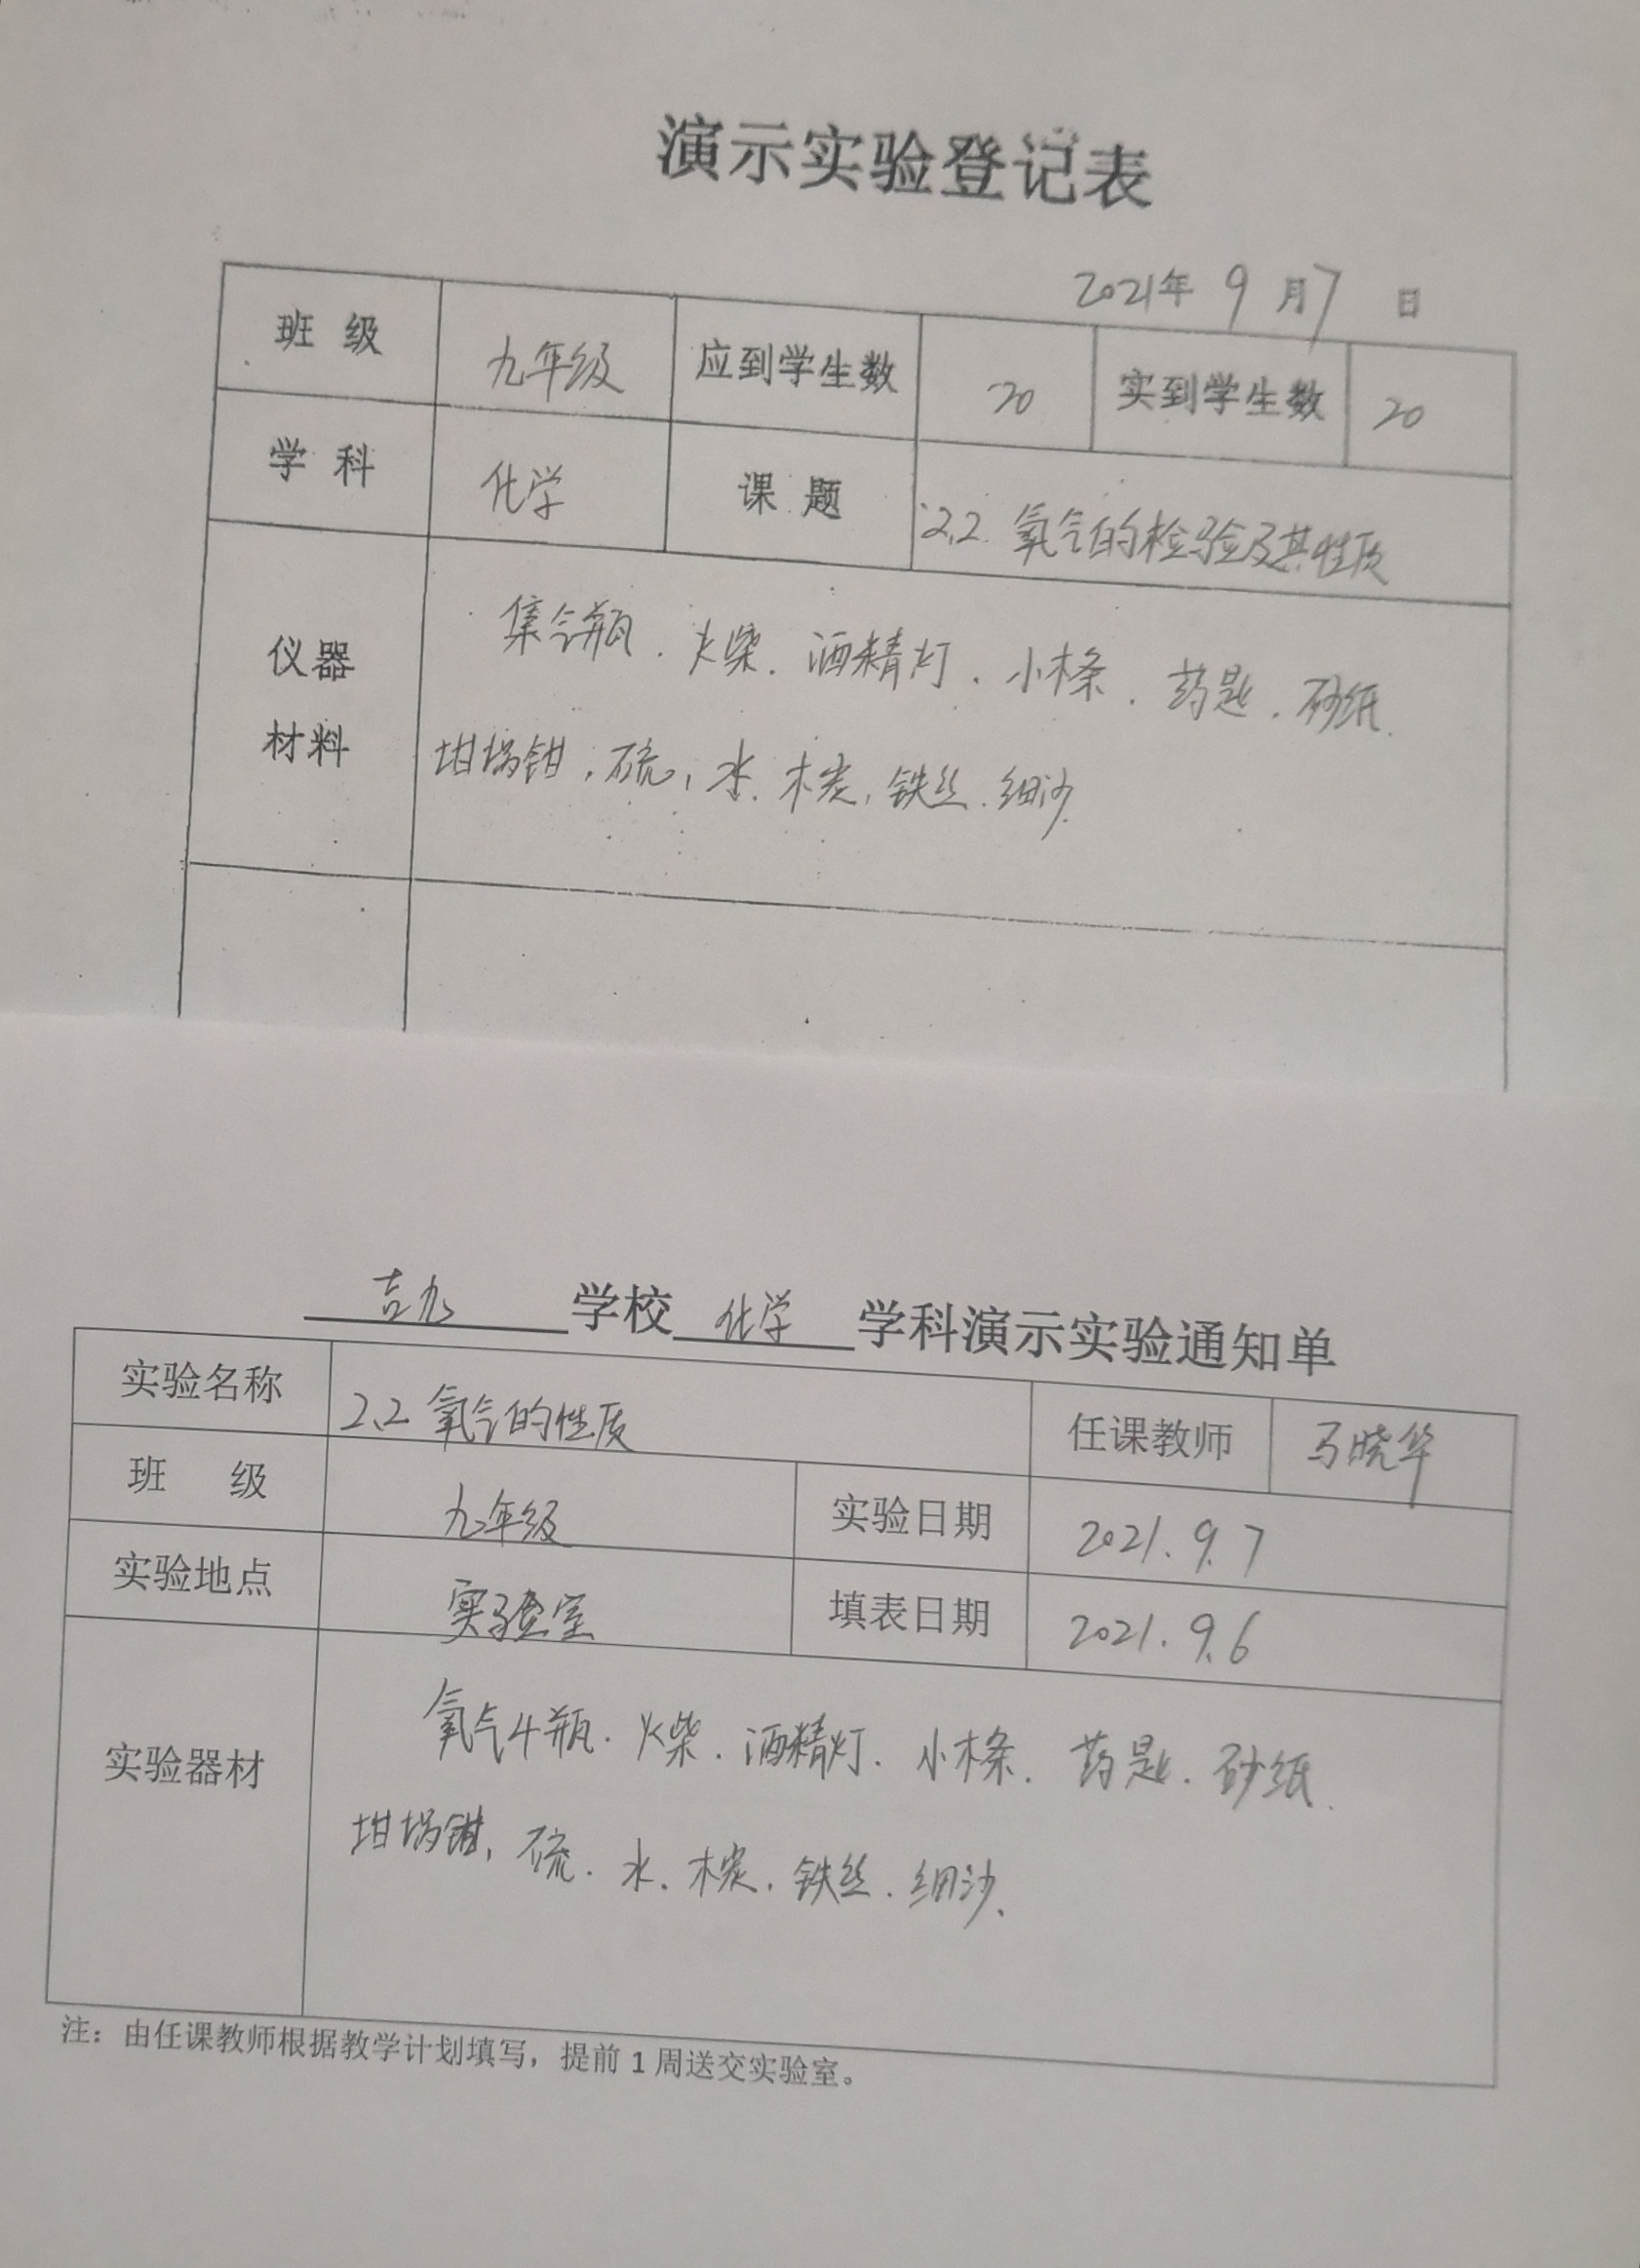 演示实验登记表
2021年 9 月 7 日
班 级 九年级 应到学生数 20 实到学生数 20
学 科 化学 课 题 2.2 氧气的检验及其性质
仪器 材料
集气瓶、火柴、酒精灯、小木条、药匙、砂纸、
坩埚钳、硫、水、木炭、铁丝、细沙
吉九 学校 化学 学科演示实验通知单
实验名称 2.2 氧气的性质 任课教师 马晓华
班 级 九年级 实验日期 2021.9.7
实验地点 实验室 填表日期 2021.9.6
实验器材
氧气4瓶、火柴、酒精灯、小木条、药匙、砂纸、
坩埚钳、硫、水、木炭、铁丝、细沙、
注：由任课教师根据教学计划填写，提前 1 周送交实验室。